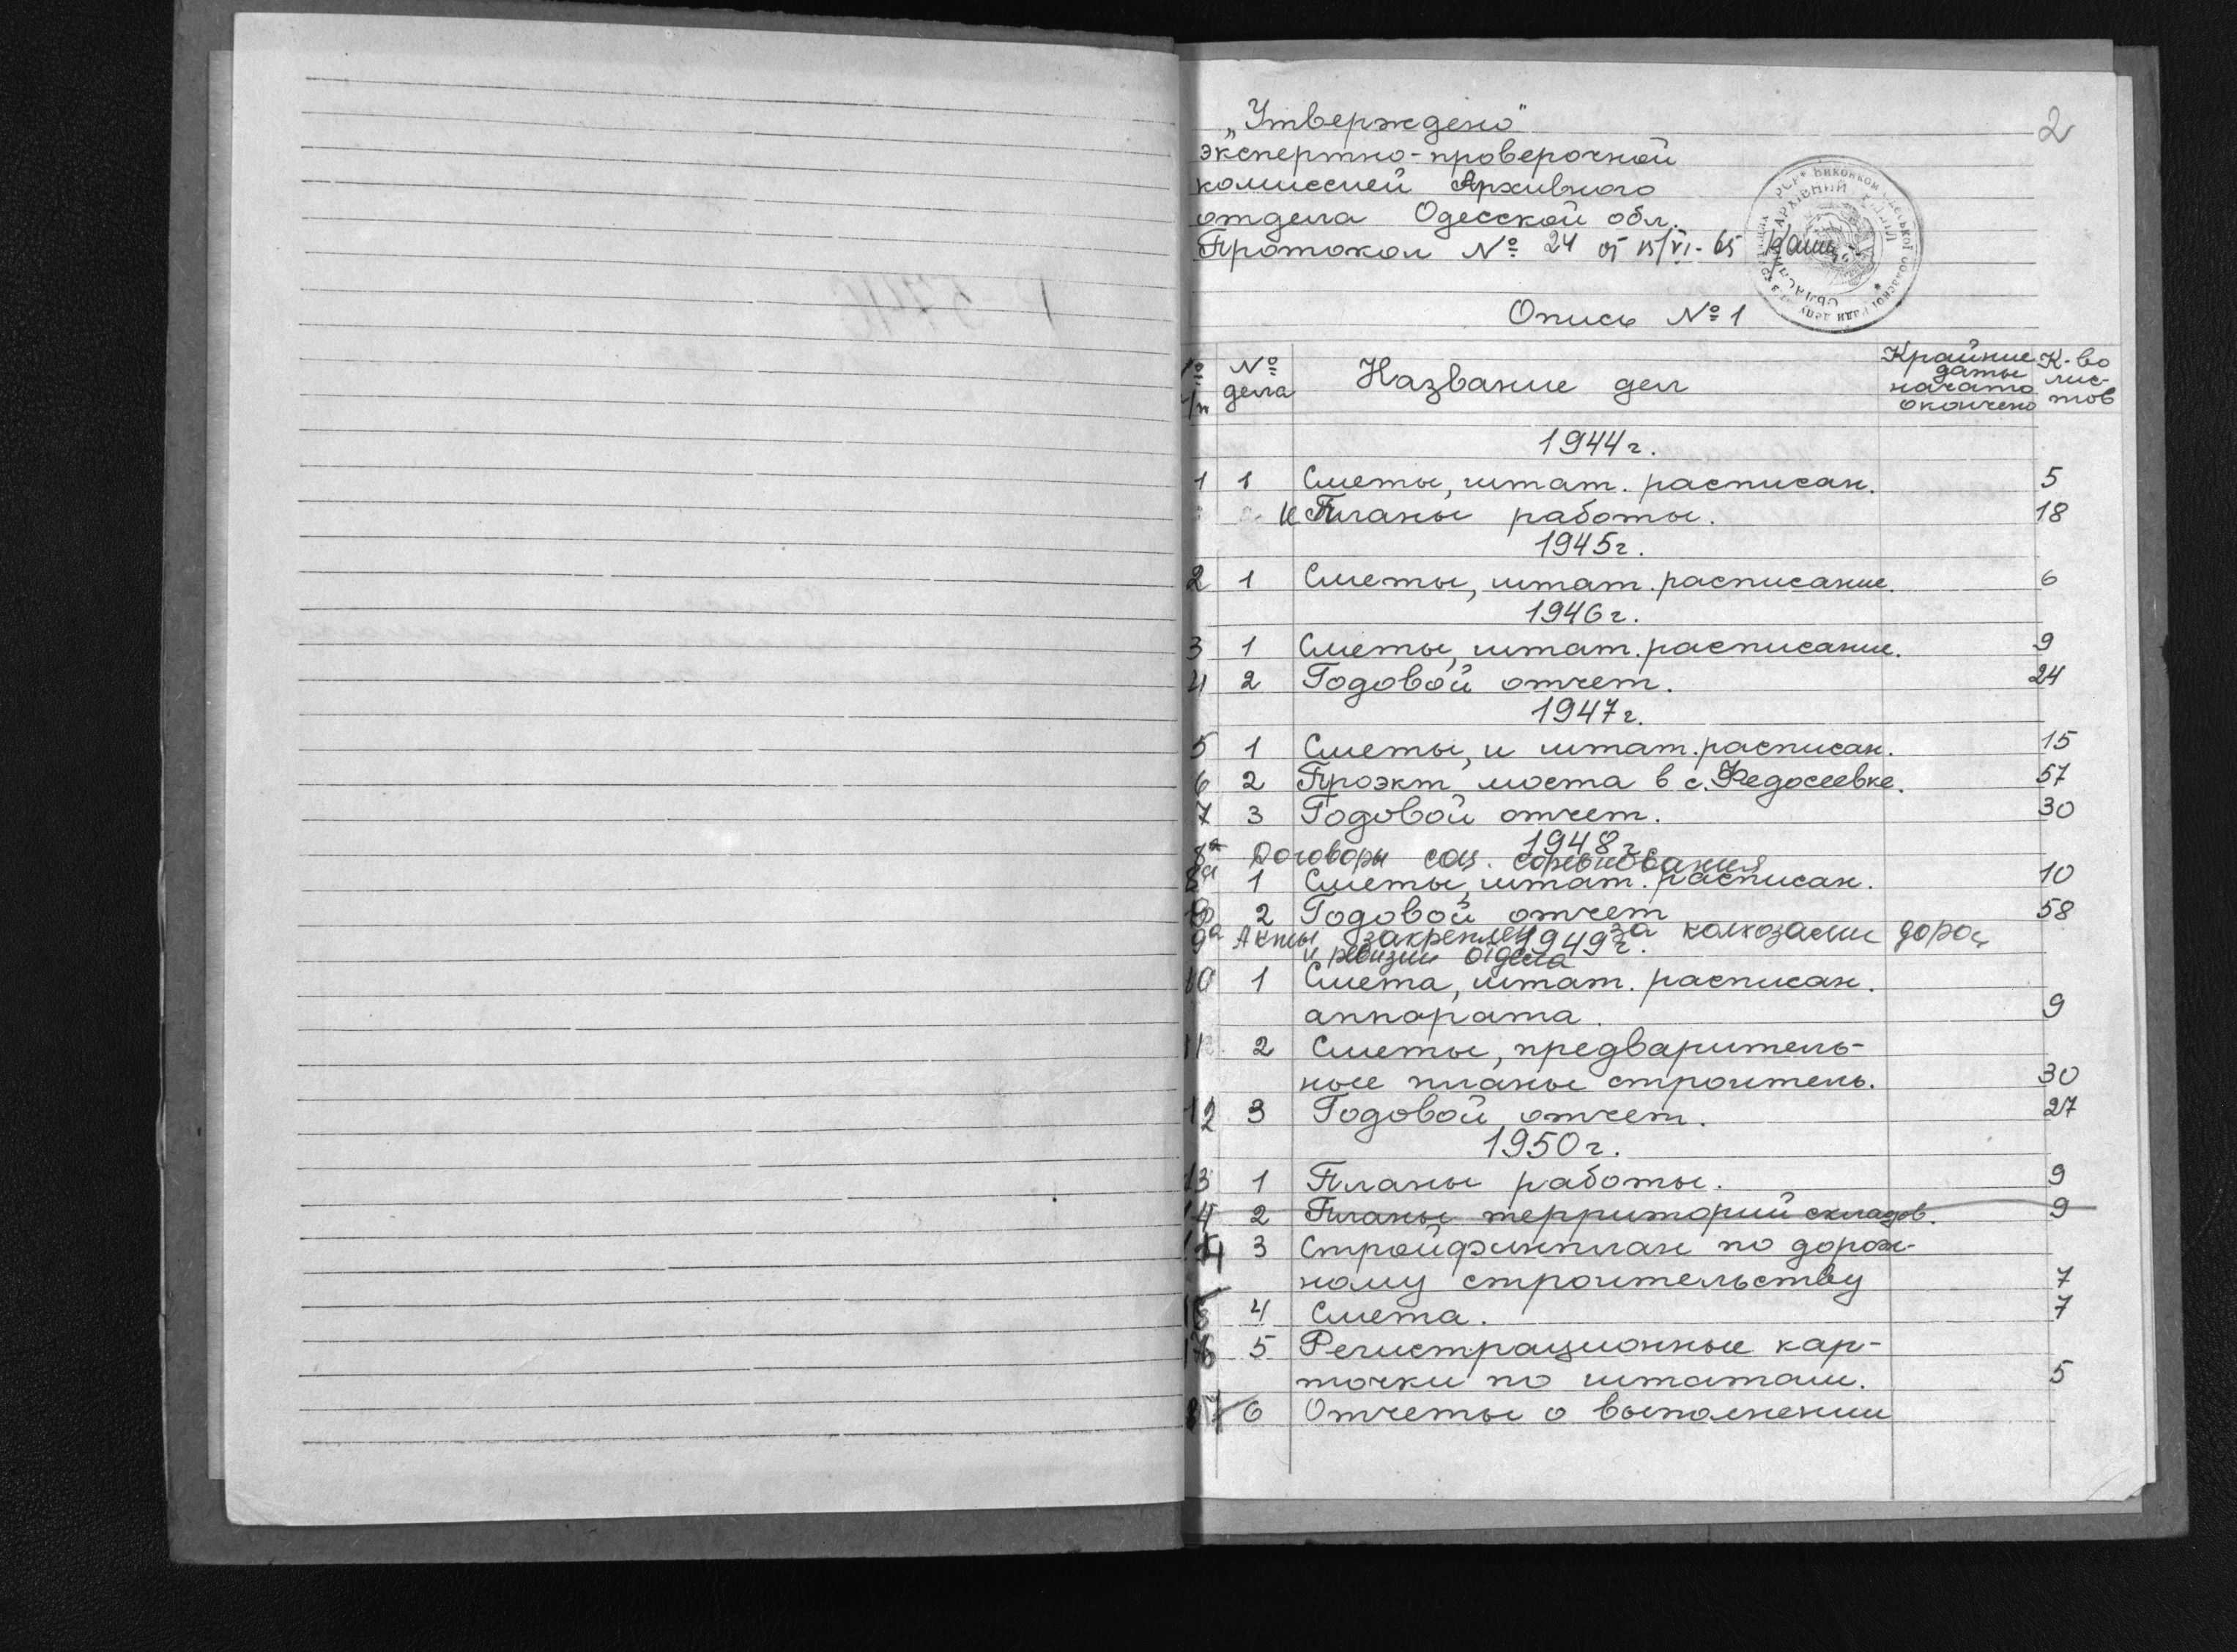 2
„Утверждено"
экспертно-проверочной
комиссией Архивного
отдела Одесской обл.
Протокол № 24 от 15/VI-65
Опись № 1
№ п/п № дела Название дел Крайние даты начато окончено К-во листов
1944г.
1 1 Сметы, штат. расписан. 5
и Планы работы. 18
1945г.
2 1 Сметы, штат. расписание. 6
1946г.
3 1 Сметы, штат. расписание. 9
4 2 Годовой отчет. 24
1947г.
5 1 Сметы, и штат. расписан. 15
6 2 Проэкт моста в с. Федосеевке. 57
7 3 Годовой отчет. 30
1948г.
8а Договоры соц. соревнования
1 Сметы, штат. расписан. 10
2 Годовой отчет 58
9а Акты закреплен за колхозами дорог
1949г.
и ревизии отдела
10 1 Смета, штат. расписан.
аппарата. 9
11 2 Сметы, предваритель-
ные планы строитель. 30
12 3 Годовой отчет. 27
1950г.
13 1 Планы работы. 9
14 2 Планы территорий складов. 9
14 3 Стройфинплан по дорож-
ному строительству 7
15 4 Смета. 7
16 5 Регистрационные кар-
точки по штатам. 5
17 6 Отчеты о выполнении